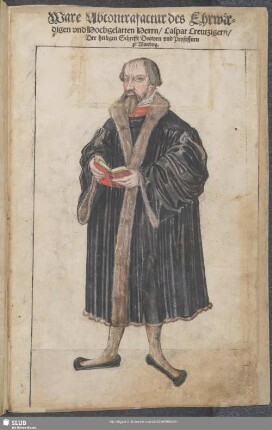 Ware Abcontrafactur des Ehrwir-
digen vnd Hochgelarten Herrn/ Caspar Creutzigern/
Der Heiligen Schrifft Doctorn vnd Professorn
zu Wittenberg.
SLUB